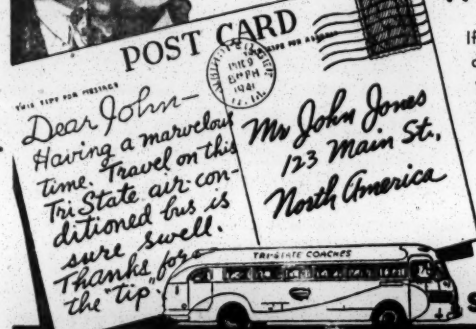 POST CARD
THIS SIDE FOR MESSAGE
Dear John—
Having a marvelous
time. Travel on this
Tri State air-con-
ditioned bus is
sure swell.
Thanks for
the "tip".
8 PM
1941
Mr John Jones
123 Main St.,
North America
TRI-STATE COACHES
If